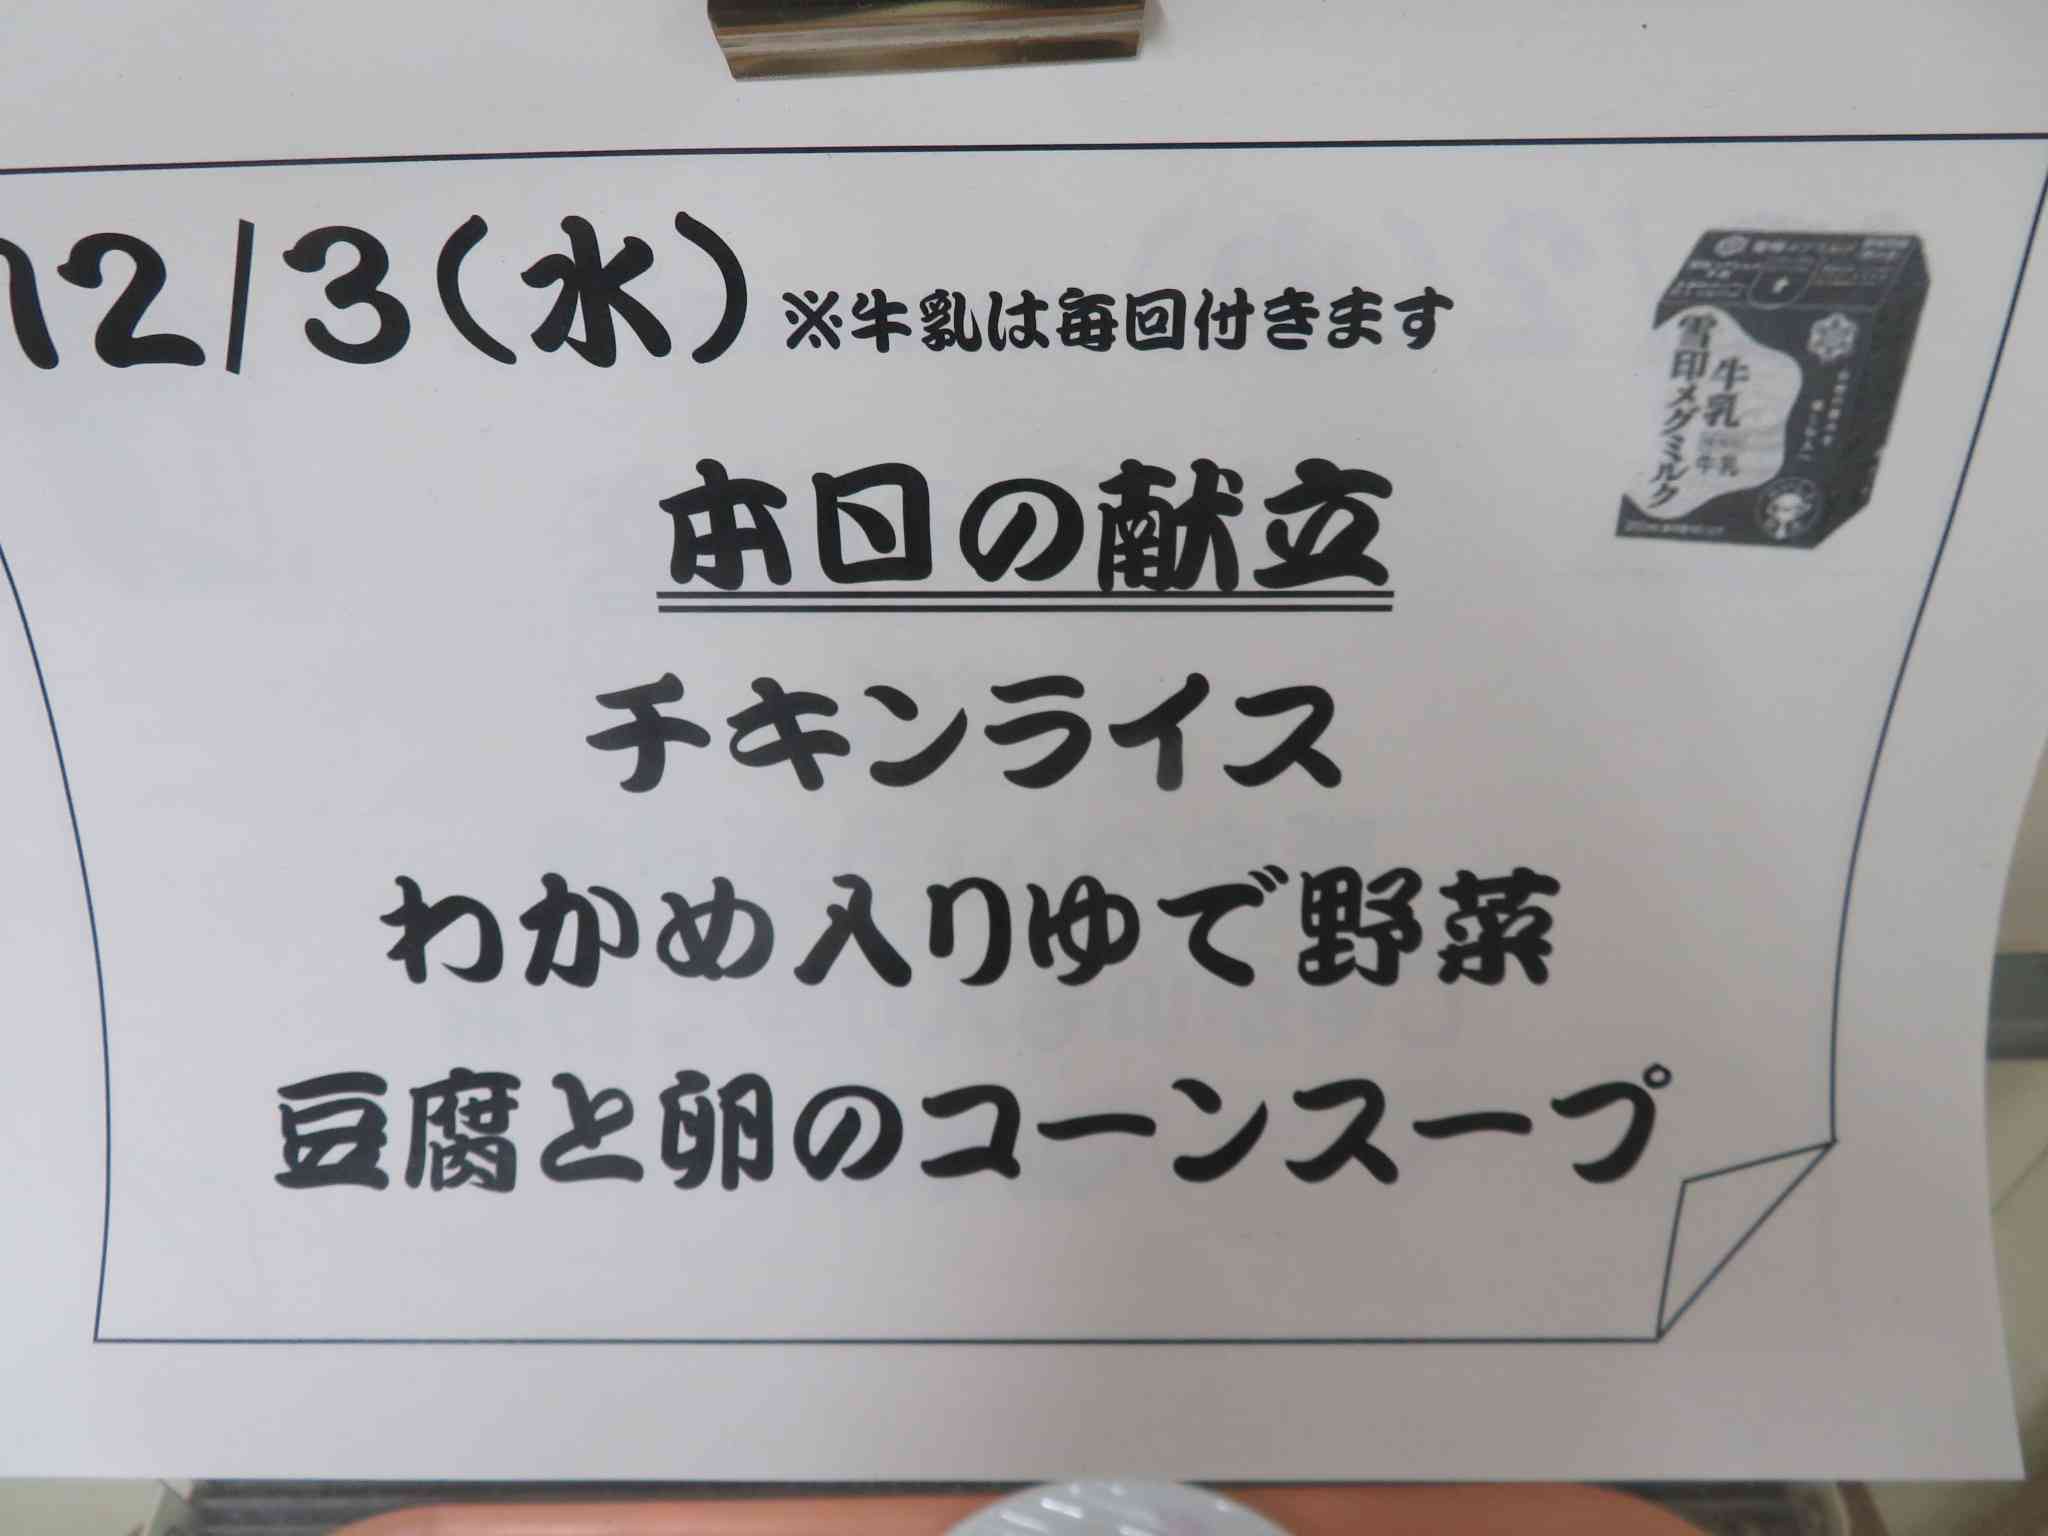 12/3(水) ※牛乳は毎回付きます
牛乳
雪印メグミルク
本日の献立
チキンライス
わかめ入りゆで野菜
豆腐と卵のコーンスープ